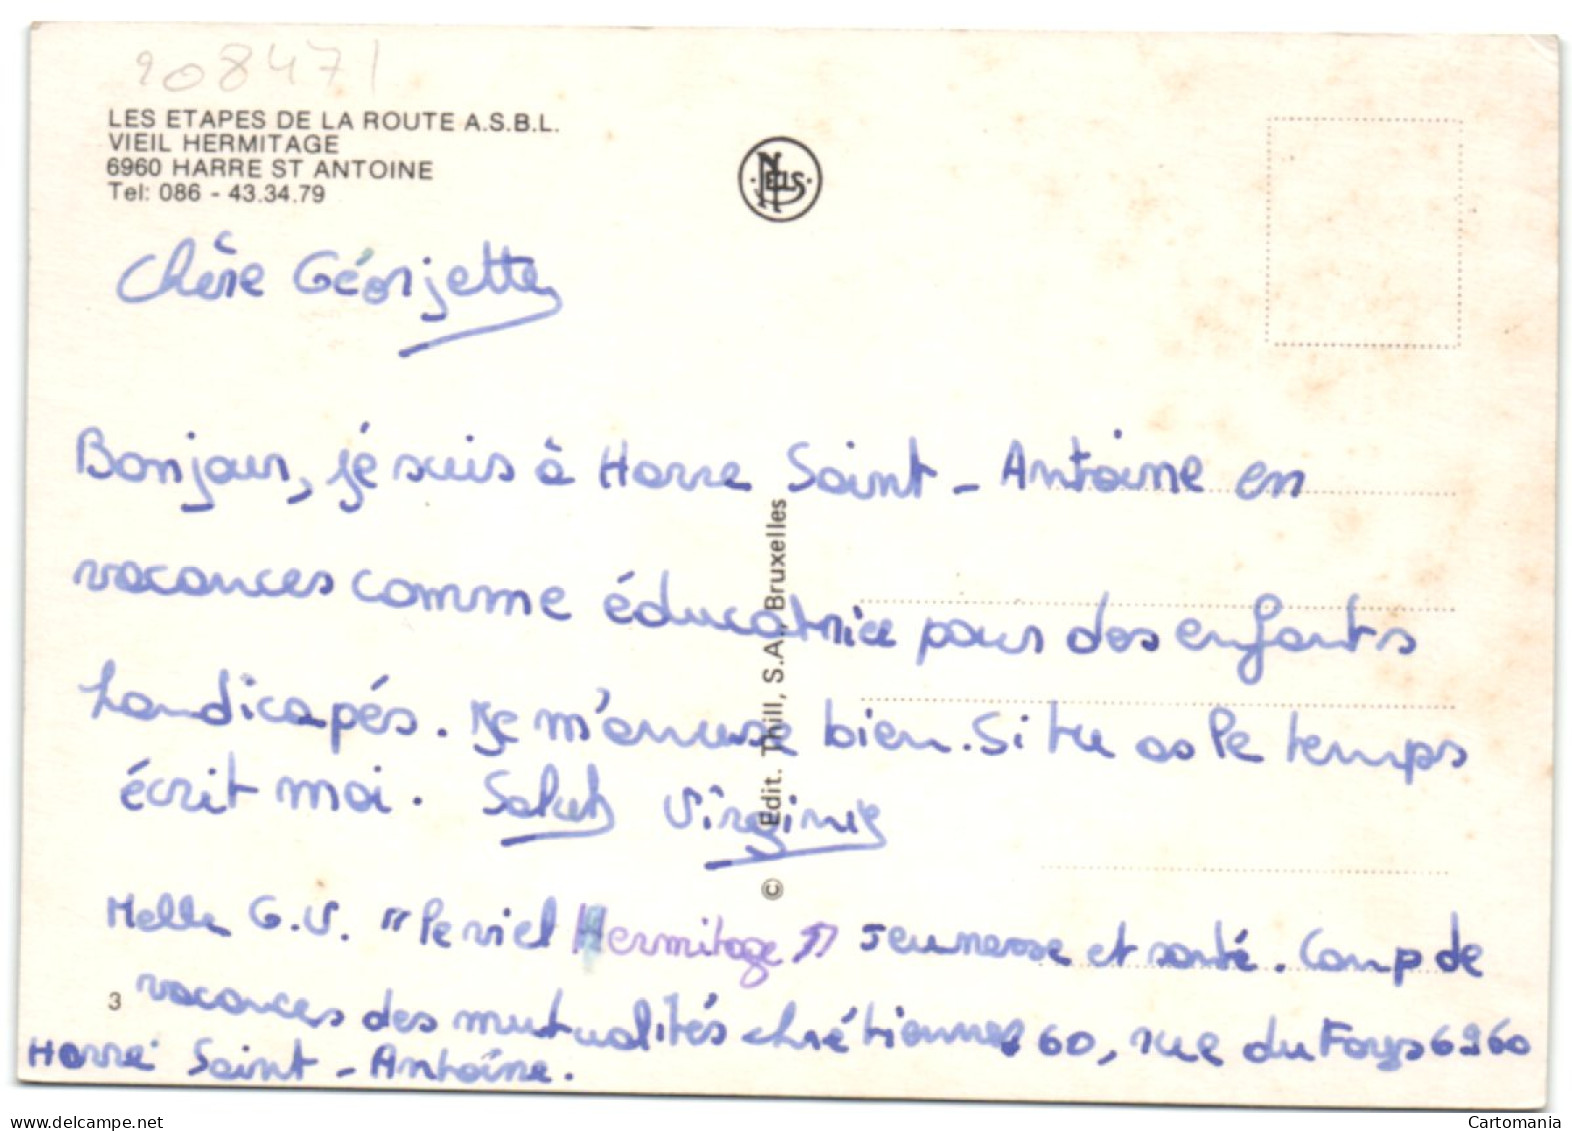 908471
LES ETAPES DE LA ROUTE A.S.B.L.
VIEIL HERMITAGE
6960 HARRE ST ANTOINE
Tel: 086 - 43.34.79
NELS
Chère Géorjette
Bonjour, je suis à Harre Saint - Antoine en
vacances comme éducatrice pour des enfants
handicapés. Je m'amuse bien. Si tu as le temps
écrit moi. Salut Virginie
© Edit. Thill, S.A., Bruxelles
Melle G.V. "le viel Hermitage" Jeunesse et santé. Camp de
3
vacances des mutualités chrétiennes 60, rue du Fays 6960
Harre Saint - Antoine.
delcampe.net
Cartomania